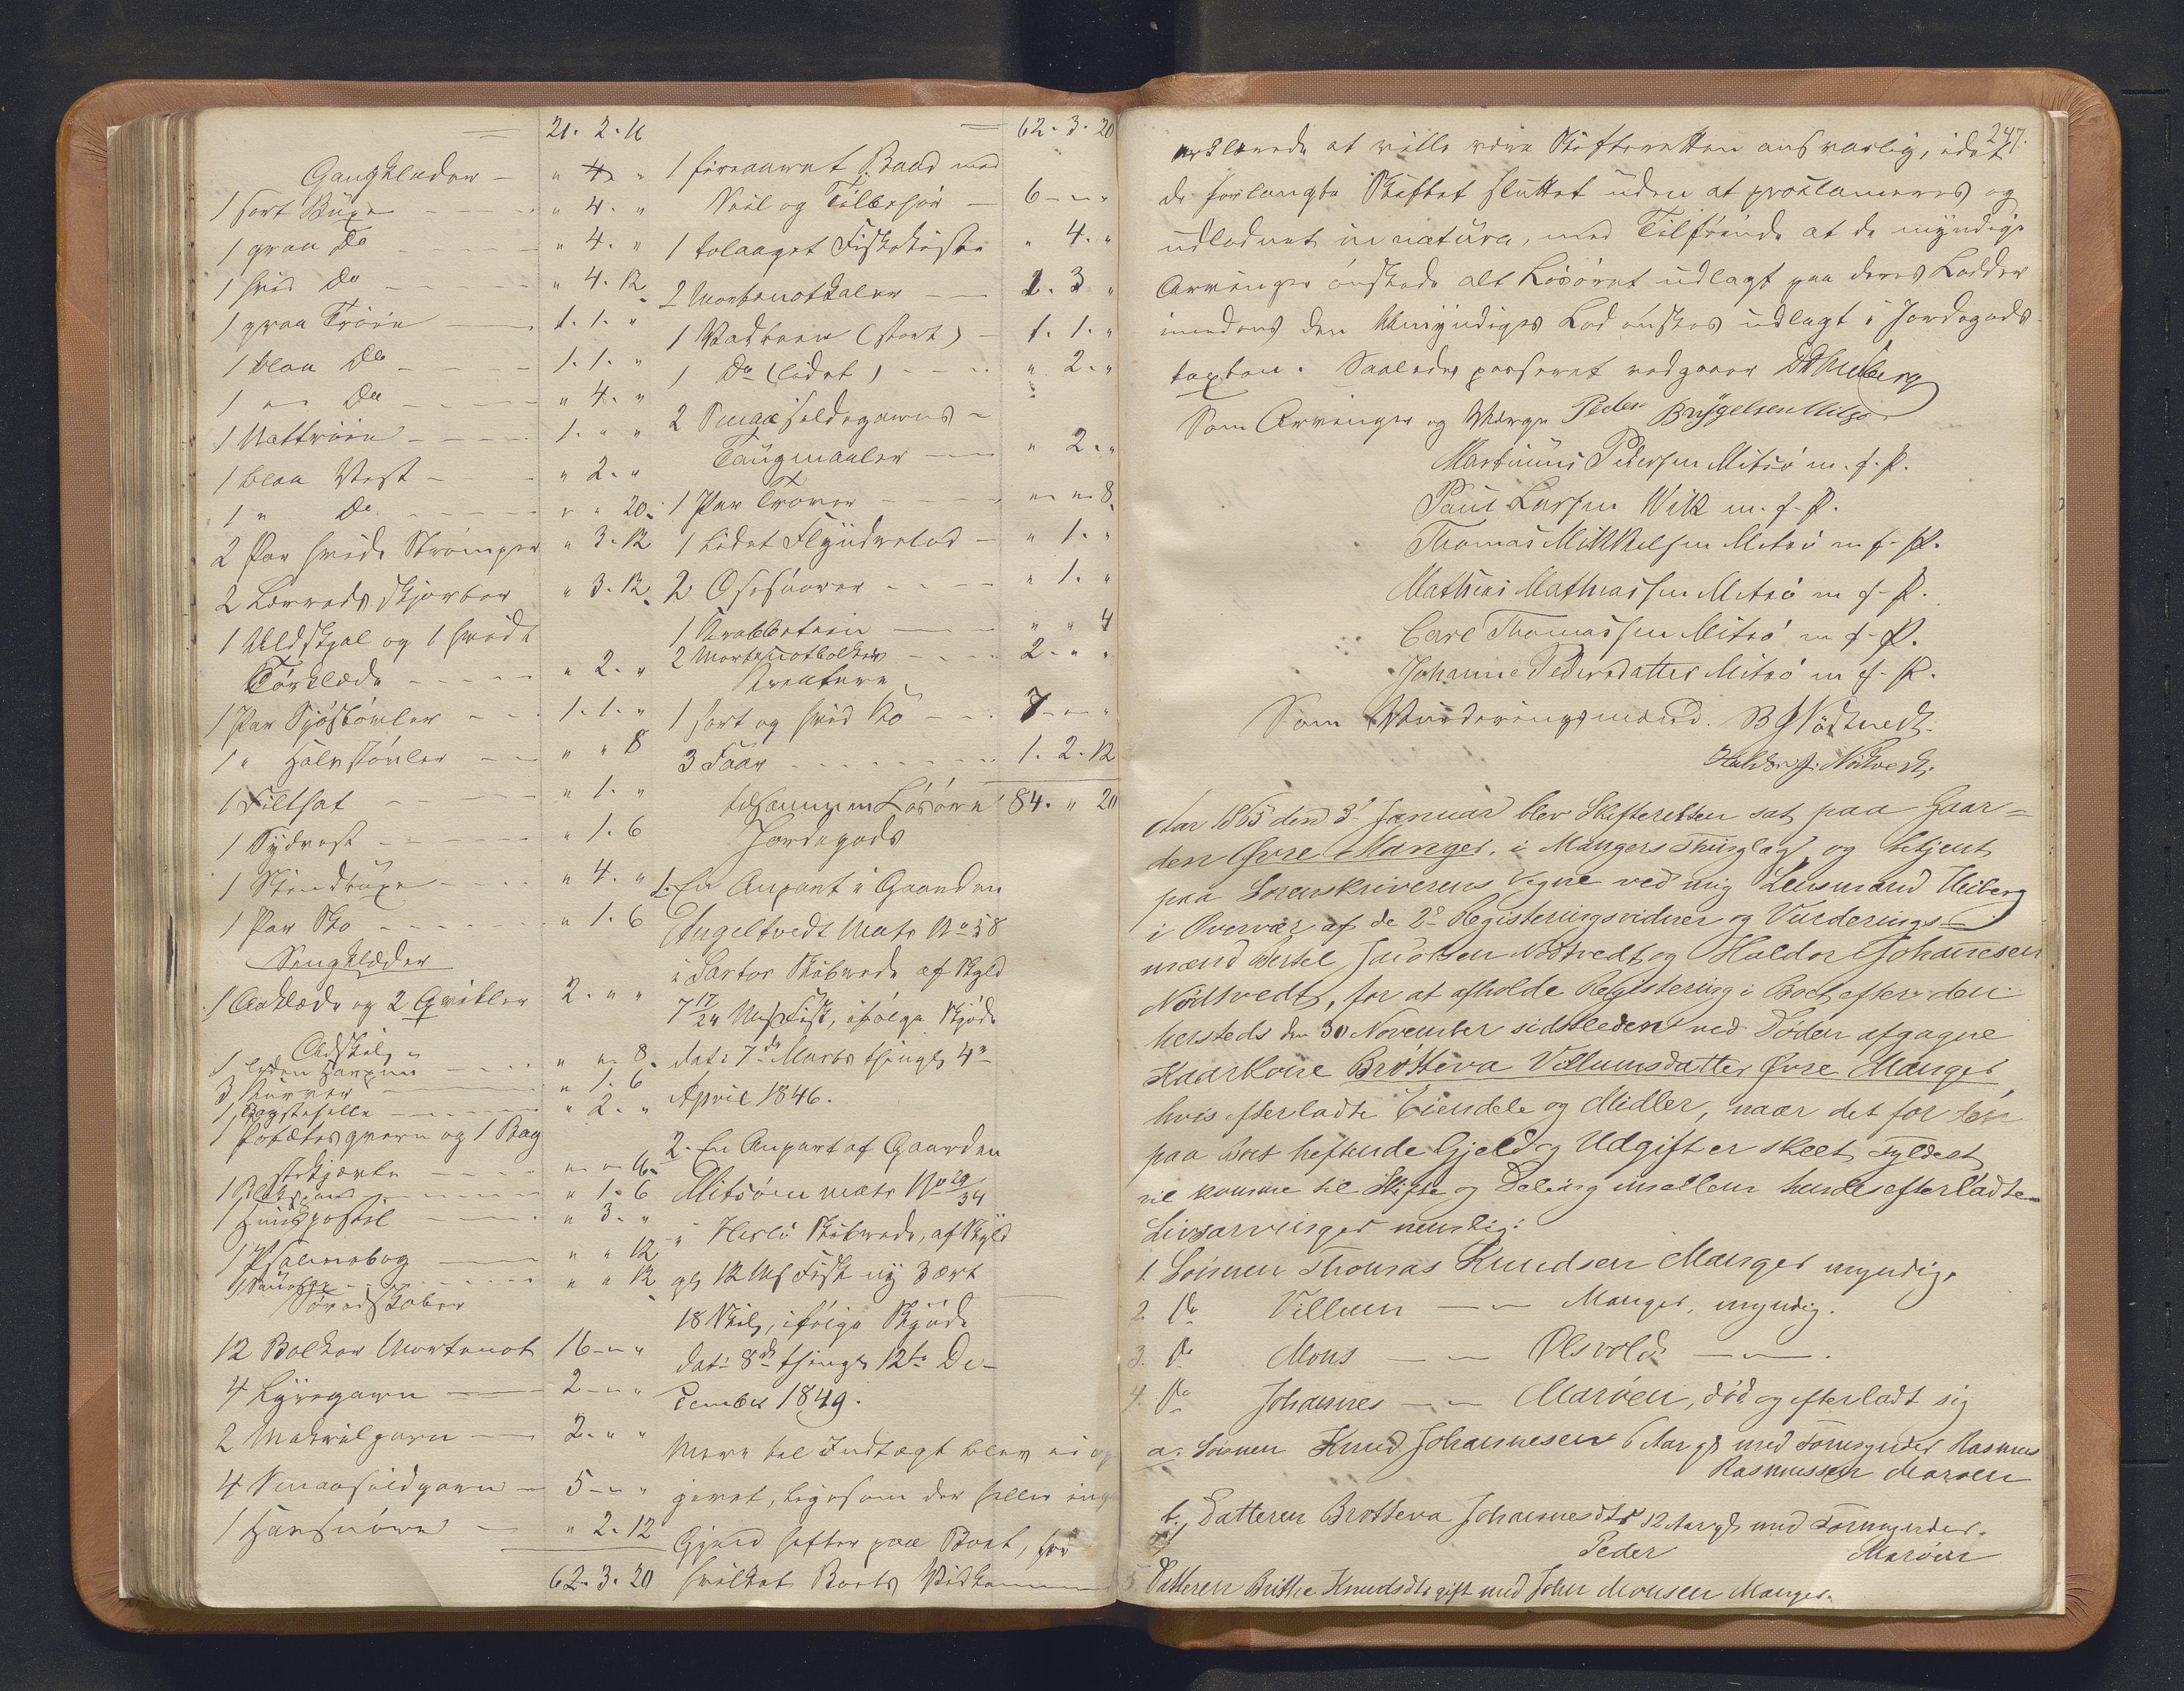 21. 2. 16
Gangklæder – " 4. "
1 sort Buxe " 4. "
1 graa Do " 4. "
1 hvid Do " 4. 12
1 graa Trøie 1. 1. "
1 blaa Do 1. 1. "
1 " Do " 4. "
1 Nattrøie 1. " "
1 blaa Vest " 2. "
1 " Do " " 20.
2 Par hvide Strømper " 3. 12
2 Lærreds Skjorter " 3. 12
1 Uldskjal og 1 hvidt
Tørklæde " 2. "
1 Par Sjøstøvler 1. 1. "
1 " Halvstøvler " " 8
1 Filthat " 1. "
1 Sydvest " 1. 6
1 Skindbuxe " 4. "
1 Par Sko " 1. 6
Sengklæder
1 Aaklæde og 2 Qvitler 2. " "
Adskil.
1 " " 8.
3 Kurver " 1. 6
1 Bagstehelle " 2. "
1 Potetesqvern og 1 Bag
stefjærle " " 16
1 " 1. 6
1 Huuspostil " 3. "
1 Psalmebog " " 12
1 " " 12
Søredskaber
12 Bolker Mortenot 16 – " "
4 Lyregarn 2 – " "
2 Makrelgarn 2. " "
4 Smaasildgarn 5 – " "
1 Havsnøre " 2. 12
62. 3. 20
62. 3. 20
1 fireaaret Baad med
Seil og Tilbehør 6 – " "
1 tolaaget Fiskekiste " 4. "
2 Mortenotkaler 1. 3 "
1 Vadbein (stort) 1. 1. "
1 Do (lidet) " 2. "
2 Smaasildegarns –
Taugmaaler " 2. "
1 Par Trover " " 8
1 lidet Flyndrelod " 1. "
2 Osesnører " 1. "
1 Krabbetein " " 4
2 Mortenotbolker 2. " "
Kreature
1 sort og hvid Ko 7 – " "
3 Faar 1. 2. 12
tilsammen Løsøre 84. " 20
Jordegods
1. En Anpart i Gaarden
Angeltvedt Matr No 58
i Sartor Skibrede af Skyld
7 17/24 Mk Fisk, ifølge Skjøde
dat: 7de Marts thingl. 4de
April 1846.
2. En Anpart af Gaarden
Mitsøen matr No 29/34
i Herlø Skibrede, af Skyld
gl. 12 Mk Fisk ny 3 ort
18 Skil, ifølge Skjøde
dat: 8de thingl. 12te De-
cember 1849.
Mere til Indtægt blev ei op
givet, ligesom der heller ingen
Gjæld hefter paa Boet, for
hvilket Boets Vedkommende
247.
erklærede at ville være Skifteretten ansvarlig, idet
de forlangte Skiftet sluttet uden at proclameres og
udlodnet in natura, med Tilføiende at de myndige
Arvinger ønskede alt Løsøret udlagt paa deres Lodder
imedens den Umyndiges Lod ønskes udlagt i Jordegods-
taxten. Saaledes passeret vedgaaer Heiberg
Som Arvinger og Værge Peder Brygelsen Mitsø
Martinus Pedersen Mitsø m. f. P.
Paul Larsen Wik m. f. P.
Thomas Mikkelsen Mitsø m f. P.
Mathias Mathiassen Mitsø m f. P.
Carl Thomassen Mitsø m f. P.
Johanne Pedersdatter Mitsø m f. P.
Som Vurderingsmænd. B J Nødtvedt.
Haldor J. Nødtvedt.
Aar 1865 den 3' Januar blev Skifteretten sat paa Gaar=
den Øvre Manger, i Mangers Thinglag og betjent
paa Sorenskriverens Vegne ved mig Lensmand Heiberg
i Overvær af de 2de Registeringsvidner og Vurderings=
mænd Bertel Jacobsen Nødtvedt og Haldor Johannesen
Nødtvedt, for at afholde Registering i Boet efter den
hersteds den 30 November sidstleden ved Døden afgagne
Kaarkone Brøtteva Villumsdatter Øvre Manger,
hvis efterladte Eiendele og Midler, naar det for den
paa Boet heftende Gjeld og Udgift er skeet Fyldest,
vil komme til Skifte og Deling imellem hendes efterladte
Livsarvinger nemlig:
1. Sønnen Thomas Knudsen Manger myndig.
2. Do Villum – " – Manger, myndig.
3. Do Mons – " – Olsvold – " – .
4. Do Johannes – " – Marøen, død og efterladt sig
a. Sønnen Knud Johannesen 6 Aar gl. med Formynder Rasmus
Rasmussen Marøen
b. Datteren Brøtteva Johannesdtr 12 Aar gl. med Formynder.
Peder Marøen
5. Datteren Brithe Knudsdtr gift med John Monsen Manger.